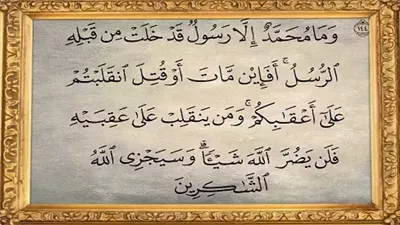 وَمَا مُحَمَّدٌ إِلَّا رَسُولٌ قَدْ خَلَتْ مِن قَبْلِهِ ١٤٤
ٱلرُّسُلُ ۚ أَفَإِي۟ن مَّاتَ أَوْ قُتِلَ ٱنقَلَبْتُمْ
عَلَىٰٓ أَعْقَـٰبِكُمْ ۚ وَمَن يَنقَلِبْ عَلَىٰ عَقِبَيْهِ
فَلَن يَضُرَّ ٱللَّهَ شَيْـًٔا ۗ وَسَيَجْزِى ٱللَّهُ
ٱلشَّـٰكِرِينَ